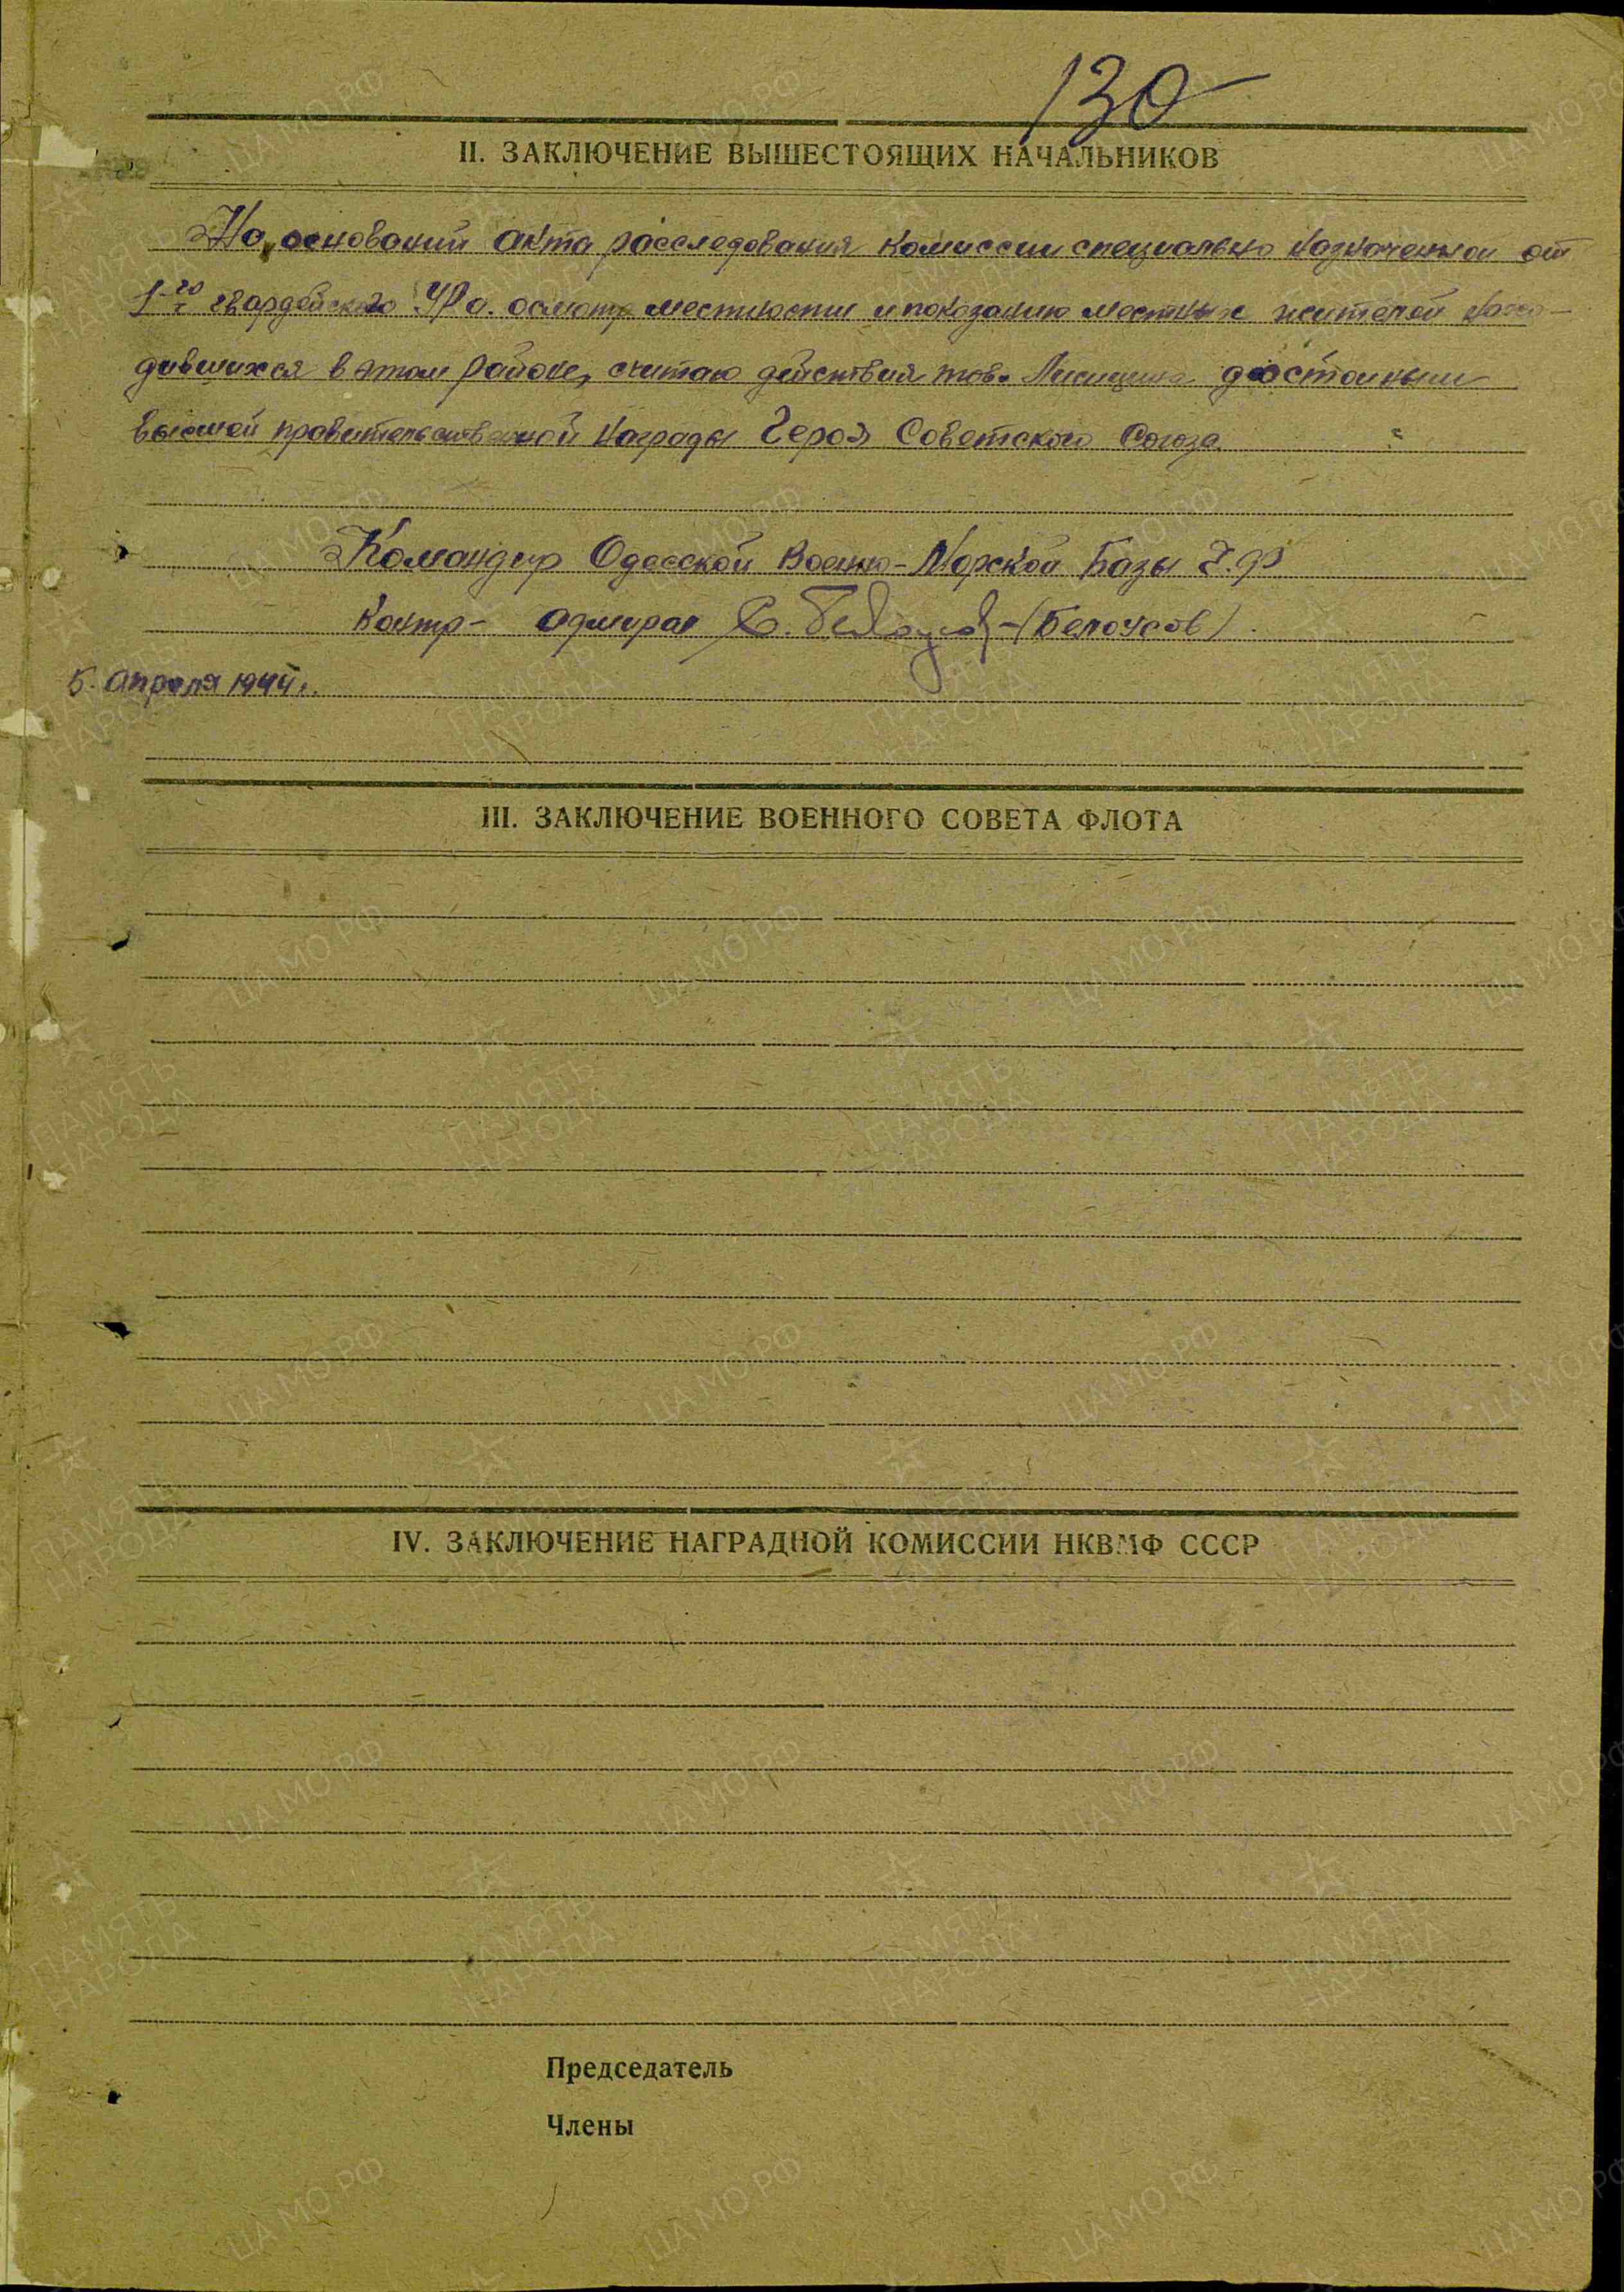 130
II. ЗАКЛЮЧЕНИЕ ВЫШЕСТОЯЩИХ НАЧАЛЬНИКОВ
На оснований акта расследования комиссии специально назначенной от
1-го гвардейского УРа. осмотр местности и показанию местных жителей нахо-
дившихся в этом районе, считаю действий тов. Лисицина достойным
высшей правительственной награды Героя Советского Союза.
Командир Одесской Военно-Морской Базы Ч.Ф
Контр- адмирал (Белоусов).
5. апреля 1944г.
III. ЗАКЛЮЧЕНИЕ ВОЕННОГО СОВЕТА ФЛОТА
IV. ЗАКЛЮЧЕНИЕ НАГРАДНОЙ КОМИССИИ НКВМФ СССР
Председатель
Члены
ЦА МО РФ
ПАМЯТЬ
НАРОДА